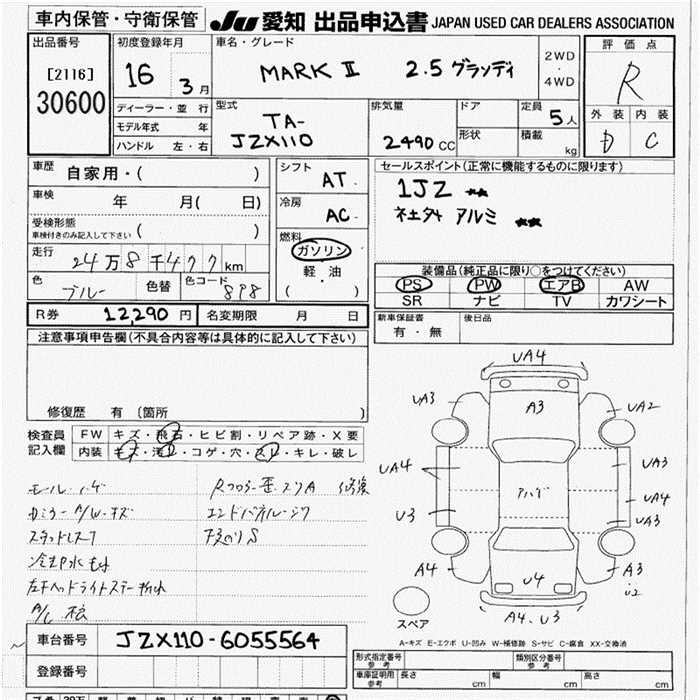 車内保管・守衛保管
JU 愛知 出品申込書 JAPAN USED CAR DEALERS ASSOCIATION
出品番号
[2116]
30600
初度登録年月
16 3月
車名・グレード
MARK Ⅱ 2.5 グランディ
2WD
4WD
評価点
R
外装 内装
D C
ディーラー・並行
モデル年式 年
ハンドル 左・右
型式
TA-
JZX110
排気量
2490 CC
ドア
形状
定員
5人
積載
kg
車歴 自家用・( )
車検 年 月( 日)
受検形態
車検付きのみ記入して下さい ( )
走行
24万8千477km
色
ブルー
色替
色コード
8P8
シフト
AT
冷房
AC
燃料
ガソリン
軽・油
( )
セールスポイント(正常に機能するものに限ります)
1JZ
社外 アルミ
装備品(純正品に限り○をつけてください)
PS PW エアB AW
SR ナビ TV カワシート
R券 12,290円 名変期限 月 日
新車保証書
有・無
後日品
注意事項申告欄(不具合内容等は具体的に記入して下さい)
修復歴 有 〔箇所 〕
検査員
記入欄
FW キズ・飛石・ヒビ割・リペア跡・X要
内装 キズ・汚れ・コゲ・穴・スレ・キレ・破レ
モール ハゲ
カミラー A/W キズ
冷却水もれ
左右ヘッドライトステー折れ
Rフロアー歪
修復
UA4
UA3
A3
UA2
UA4
UA3
アハゲ
UA4
U3
UA3
A4
U4
A3
A4、U3
スペア
A-キズ E-エクボ U-凹み W-補修跡 S-サビ C-腐食 XX-交換済
車台番号 JZX110-6055564
登録番号
形式指定番号
参考
類別区分番号
参考
車庫証明用
参考
長さ cm
幅 cm
高さ cm